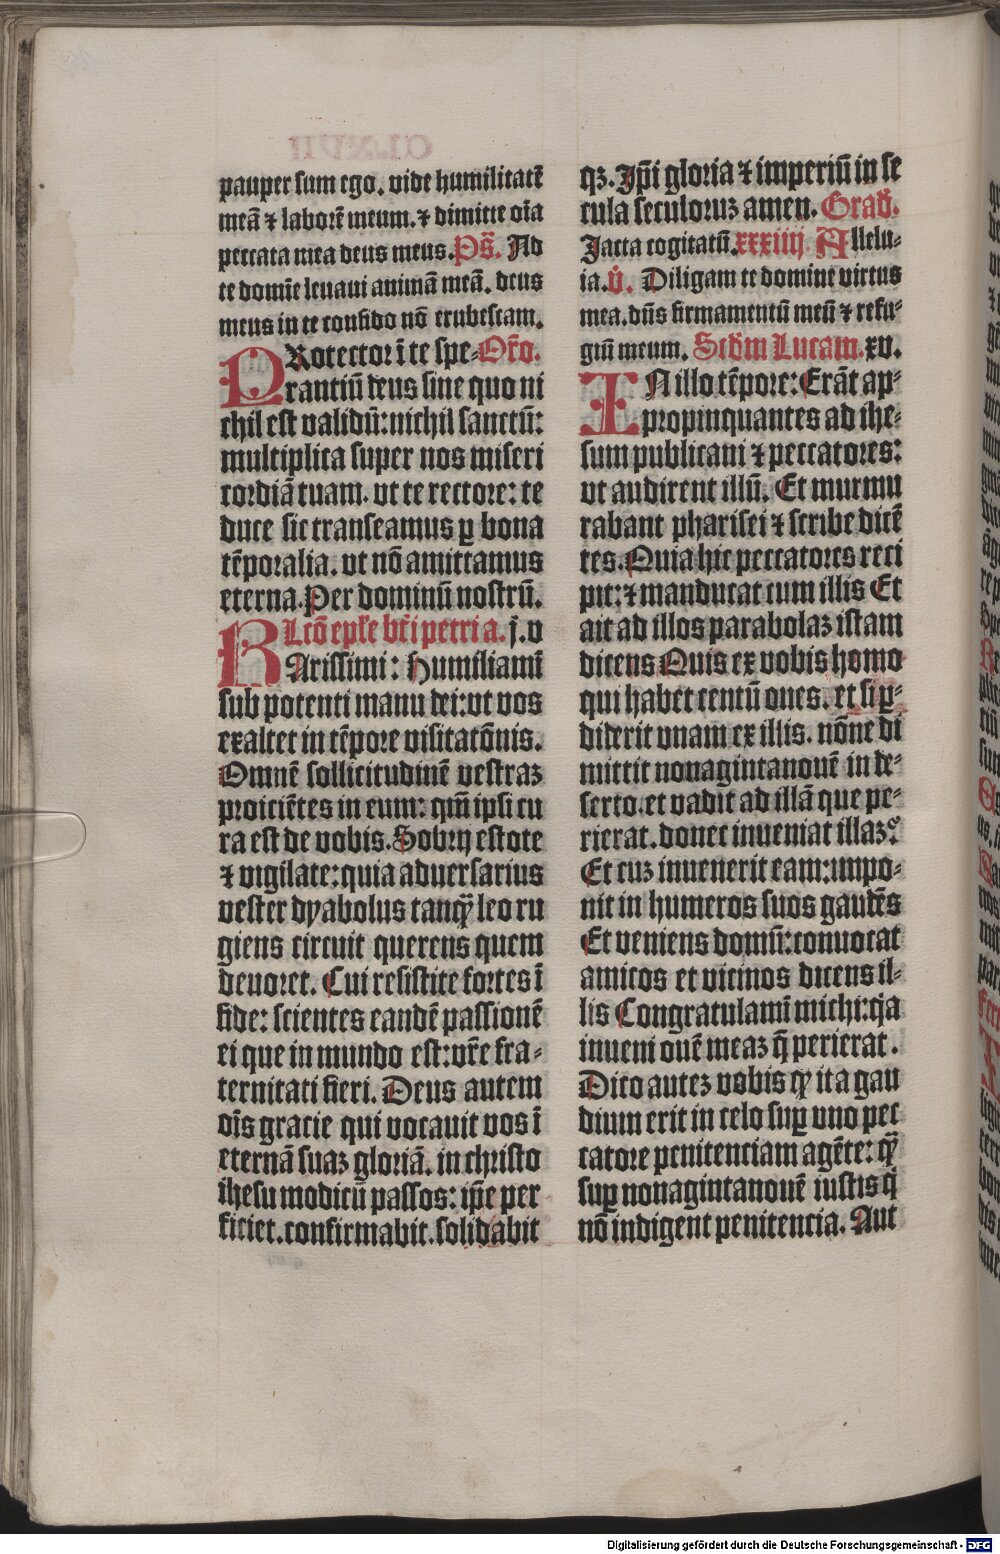 pauper sum ego. vide humilitatē
meā ⁊ laborē meum. ⁊ dimitte oīa
peccata mea deus meus. Ps̄. Ad
te domīe levavi animā meā. deus
meus in te confido nō erubescam.
PRotector ī te spe- Or̄o.
rantiū deus sine quo ni
chil est validū: nichil sanctū:
multiplica super nos miseri
cordiā tuam. vt te rectore: te
duce sic transeamus ꝑ bona
tēporalia. vt nō amittamus
eterna. Per dominū nostrū.
Lc̄o ep̄le bt̄i petri a. j. v
KArissimi: Humiliamī
sub potenti manu dei: vt vos
exaltet in tēpore visitatōnis.
Omnē sollicitudinē vestraꝫ
proiciētes in eum: qm̄ ipsi cu
ra est de vobis. Sobrij estote
⁊ vigilate: quia aduersarius
vester dyabolus tanqꝫ leo ru
giens circuit querens quem
deuoret. Cui resistite fortes ī
fide: scientes eandē passionē
ei que in mundo est: vr̄e fra-
ternitati fieri. Deus autem
oīs gracie qui vocauit vos ī
eternā suaꝫ gloriā. in christo
ihesu modicū passos: ip̄e per
ficiet. confirmabit. solidabit
qꝫ. Ip̄i gloria ⁊ imperiū in se
cula seculoruꝫ amen. Grad̄.
Jacta cogitatū. xxxiiij. Allelu-
ia. v̄. Diligam te domine virtus
mea. dn̄s firmamentū meū ⁊ refu-
giū meum. Scd̄m Lucam. xv.
IN illo tēpore: Erāt ap-
propinquantes ad ihe-
sum publicani ⁊ peccatores:
vt audirent illū. Et murmu
rabant pharisei ⁊ scribe dicē
tes. Quia hic peccatores reci
pit: ⁊ manducat cum illis Et
ait ad illos parabolaꝫ istam
dicens Quis ex vobis homo
qui habet centū oues. et si ꝑ-
diderit vnam ex illis. nōne di
mittit nonagintanouē in de-
serto. et vadit ad illā que pe-
rierat. donec inueniat illaꝫ?
Et cuꝫ inuenerit eam: impo-
nit in humeros suos gaudēs
Et veniens domū: conuocat
amicos et vicinos dicens il-
lis Congratulamī michi: q̄a
inueni ouē meaꝫ q̄ perierat.
Dico auteꝫ vobis qꝫ ita gau
dium erit in celo suꝑ vno pec
catore penitenciam agēte: qꝫ
suꝑ nonagintanouē iustis q̄
nō indigent penitencia. Aut
Digitalisierung gefördert durch die Deutsche Forschungsgemeinschaft - DFG